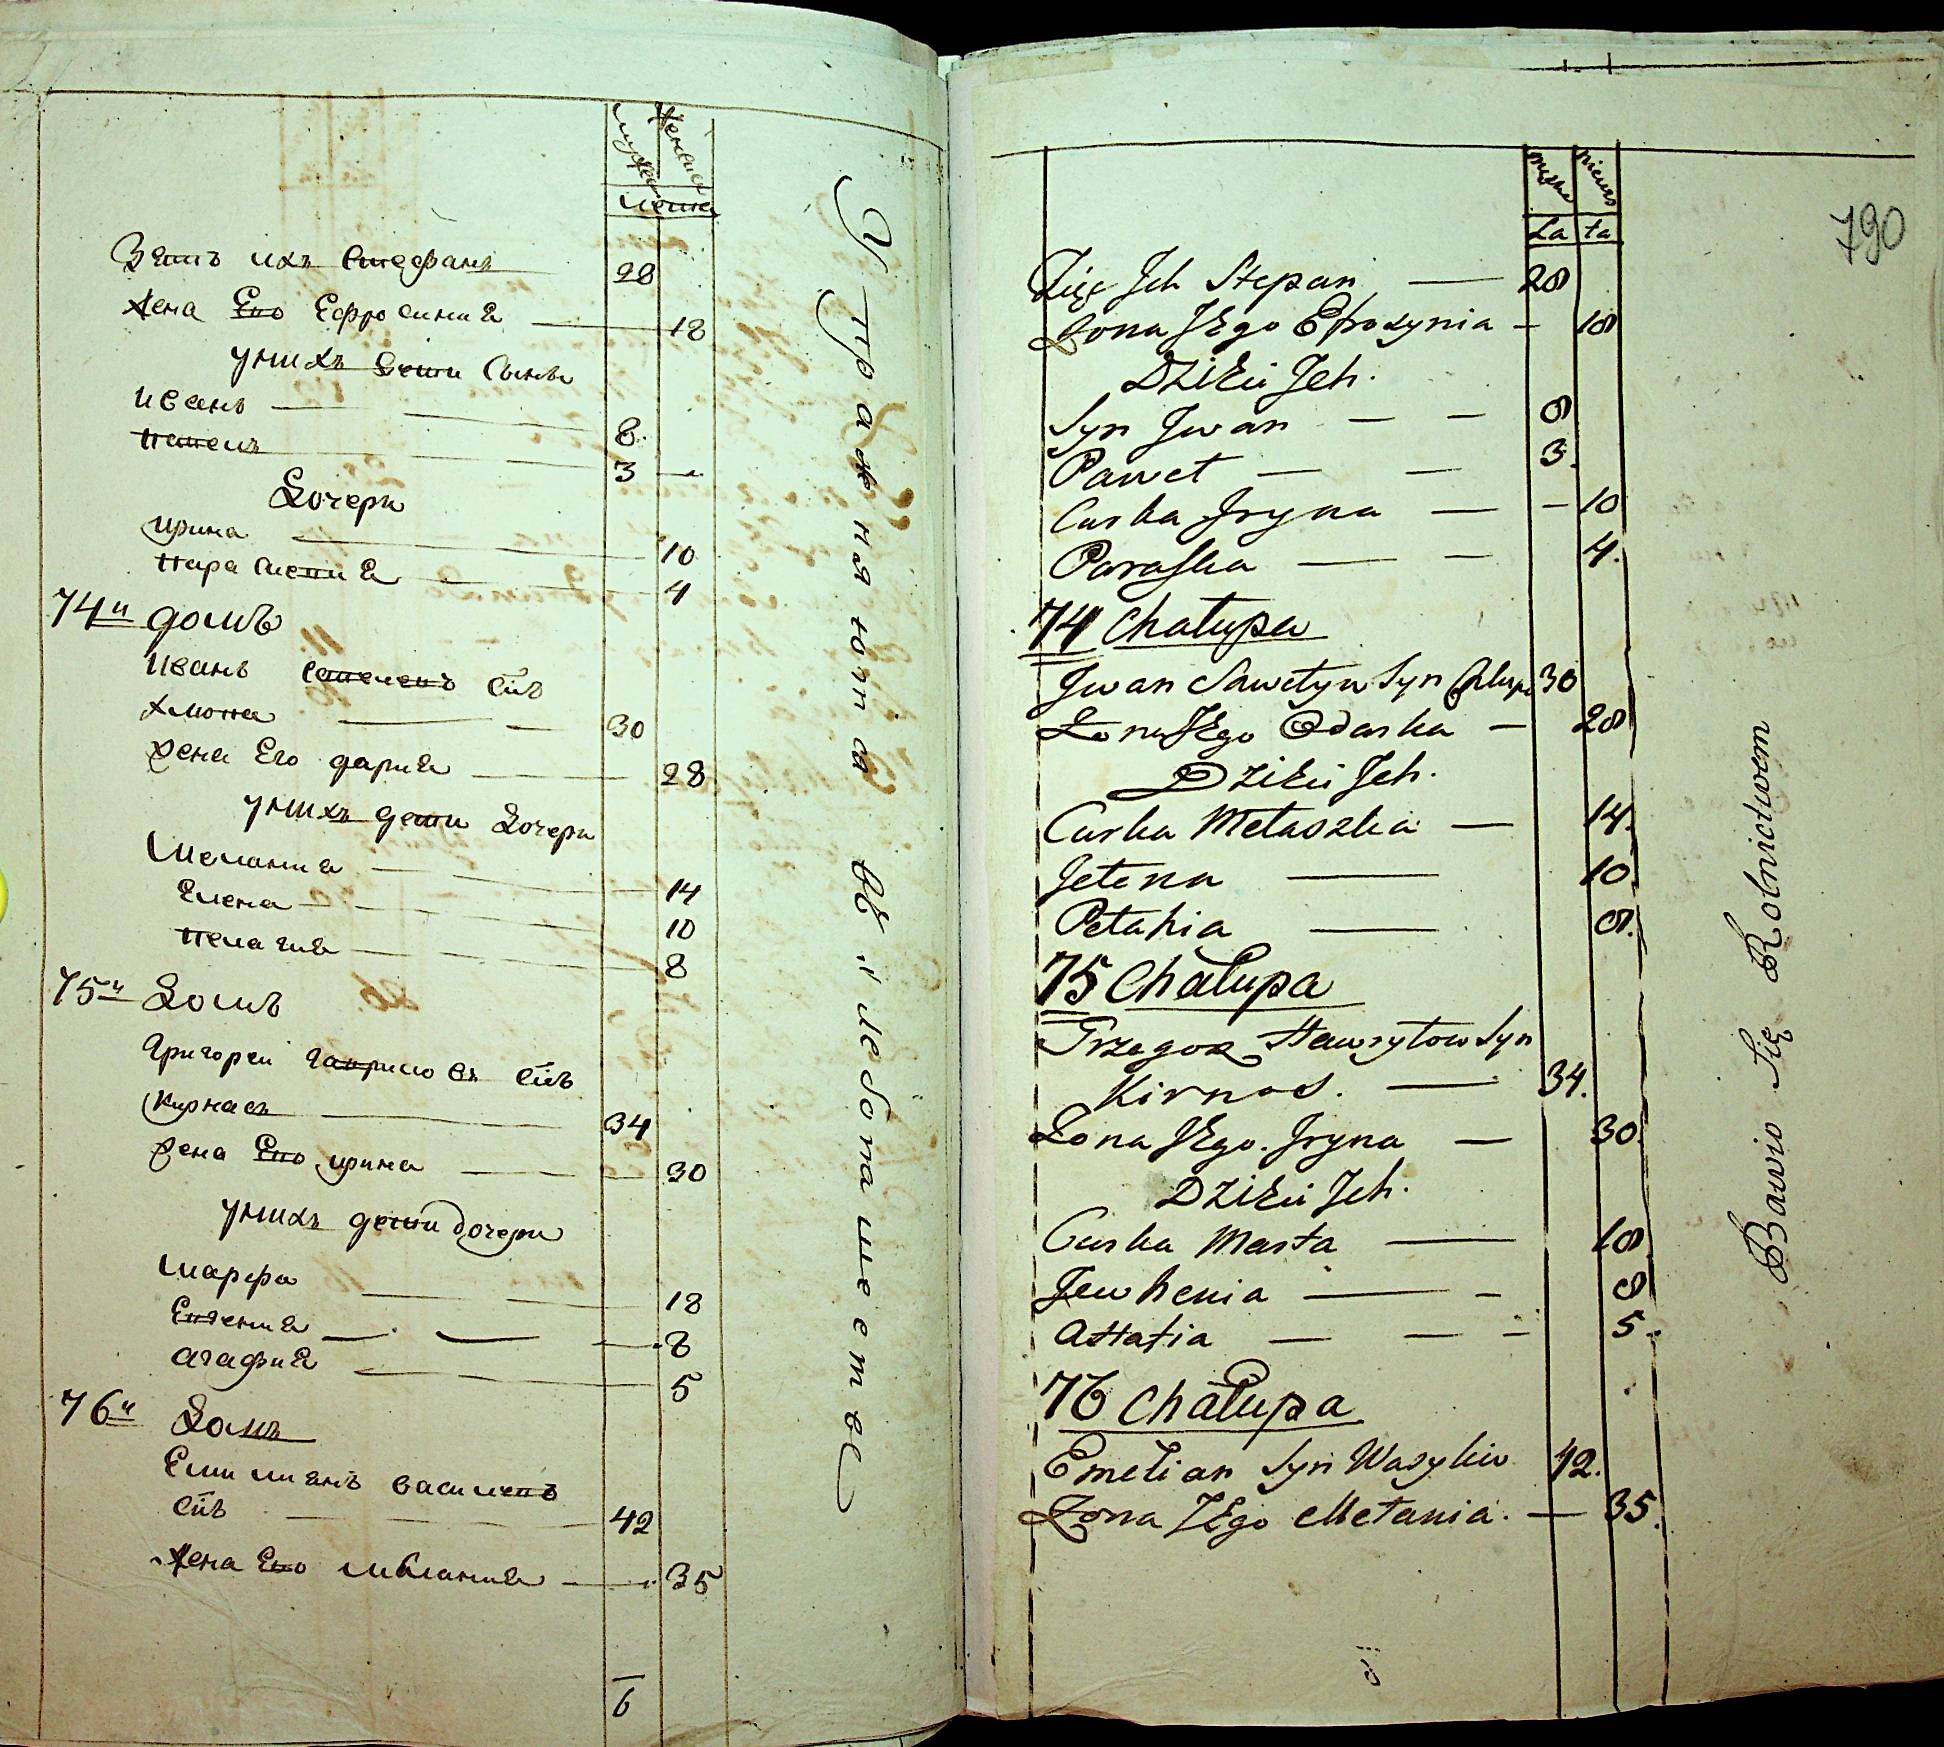 мужеска
женска
лета
Зять ихъ Стефанъ 28
Жена Его Ефросиния 18
У нихъ дети Сыны
Иванъ 8
Павелъ 3
Дочери
Ирина 10
Параскевия 4
74й домъ
Иванъ Савелевъ Сынъ
30
Жена Его Дария 28
У нихъ дети Дочери
Мелания 14
Елена 10
Пелагия 8
75й Домъ
Григорей Гавриловъ Сынъ
Кирнасъ 34
Жена Его Ирина 30
У нихъ дети Дочери
Марфа 18
Евгения 8
Агафия 5
76й Домъ
Емилианъ Василевъ
Сынъ 42
Жена Его Мелания 35
6
Упражняются въ хлебопашестве
790
La ta
Zięć Ich Stepan 28
Żona Jego Efrozynia 18
Dzieci Ich.
Syn Iwan 8
Paweł 3.
Curka Iryna 10
Paraska 4.
74 Chałupa
Iwan Saweływ Syn 30
Żona Jego Odarka 28
Dzieci Ich.
Curka Mełaszka 14.
Jełena 10
Pełahia 8.
75 Chałupa
Grzegorz Hawryłow Syn
Kirnas. 34.
Żona Jego. Iryna 30.
Dzieci Ich.
Curka Marta 18
Jewhenia 8
Ahafia 5.
76 Chałupa
Emelian Syn Wasylów 42.
Żona Jego Mełania. 35.
Bawio Się Rolnictwem